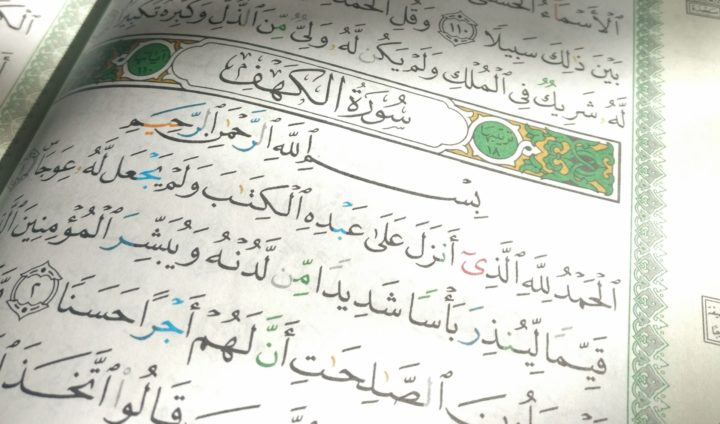 ٱلْأَسْمَآءُ ٱلْحُسْنَىٰ
بَيْنَ ذَٰلِكَ سَبِيلًا ١١٠ وَقُلِ ٱلْحَمْدُ
لَّهُۥ شَرِيكٌ فِي ٱلْمُلْكِ وَلَمْ يَكُن لَّهُۥ وَلِيٌّ مِّنَ ٱلذُّلِّ وَكَبِّرْهُ تَكْبِيرًا
سُورَةُ ٱلْكَهْفِ
ترتيبها ١٨
بِسْمِ ٱللَّهِ ٱلرَّحْمَٰنِ ٱلرَّحِيمِ
ٱلْحَمْدُ لِلَّهِ ٱلَّذِىٓ أَنزَلَ عَلَىٰ عَبْدِهِ ٱلْكِتَٰبَ وَلَمْ يَجْعَل لَّهُۥ عِوَجَاۜ
قَيِّمًا لِّيُنذِرَ بَأْسًا شَدِيدًا مِّن لَّدُنْهُ وَيُبَشِّرَ ٱلْمُؤْمِنِينَ
ٱلصَّٰلِحَٰتِ أَنَّ لَهُمْ أَجْرًا حَسَنًا ٢
قَالُوا۟ ٱتَّخَذَ